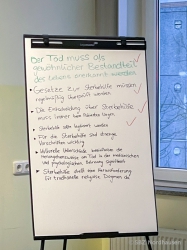 Der Tod muss als
gewöhnlicher Bestandteil
des Lebens anerkannt werden
Gesetze zur Sterbehilfe müssen
regelmäßig überprüft werden
Die Entscheidung über Sterbehilfe
muss immer beim Patienten liegen
Sterbehilfe sollte legalisiert werden
Für die Sterbehilfe sind strenge
Vorschriften wichtig
Kulturelle Unterschiede beeinflussen die
Sterbehilfe stellt eine Herausforderung
für traditionelle religiöse Dogmen dar